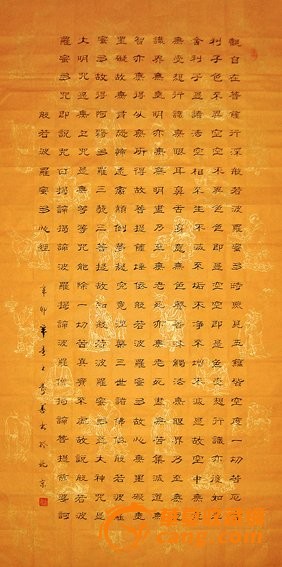 觀自在菩薩行深般若波羅蜜多時照見五蘊皆空度一切苦厄舍
利子色不異空空不異色色即是空空即是色受想行識亦復如是
舍利子是諸法空相不生不滅不垢不淨不增不減是故空中無色
無受想行識無眼耳鼻舌身意無色聲香味觸法無眼界乃至無意
識界無無明亦無無明盡乃至無老死亦無老死盡無苦集滅道無
智亦無得以無所得故菩提薩埵依般若波羅蜜多故心無罣礙無
罣礙故無有恐怖遠離顛倒夢想究竟涅槃三世諸佛依般若波羅
蜜多故得阿耨多羅三藐三菩提故知般若波羅蜜多是大神咒是
大明咒是無上咒是無等等咒能除一切苦真實不虛故說般若波
羅蜜多咒即說咒曰揭諦揭諦波羅揭諦波羅僧揭諦菩提薩婆訶
般若波羅蜜多心經
辛卯年 於北京